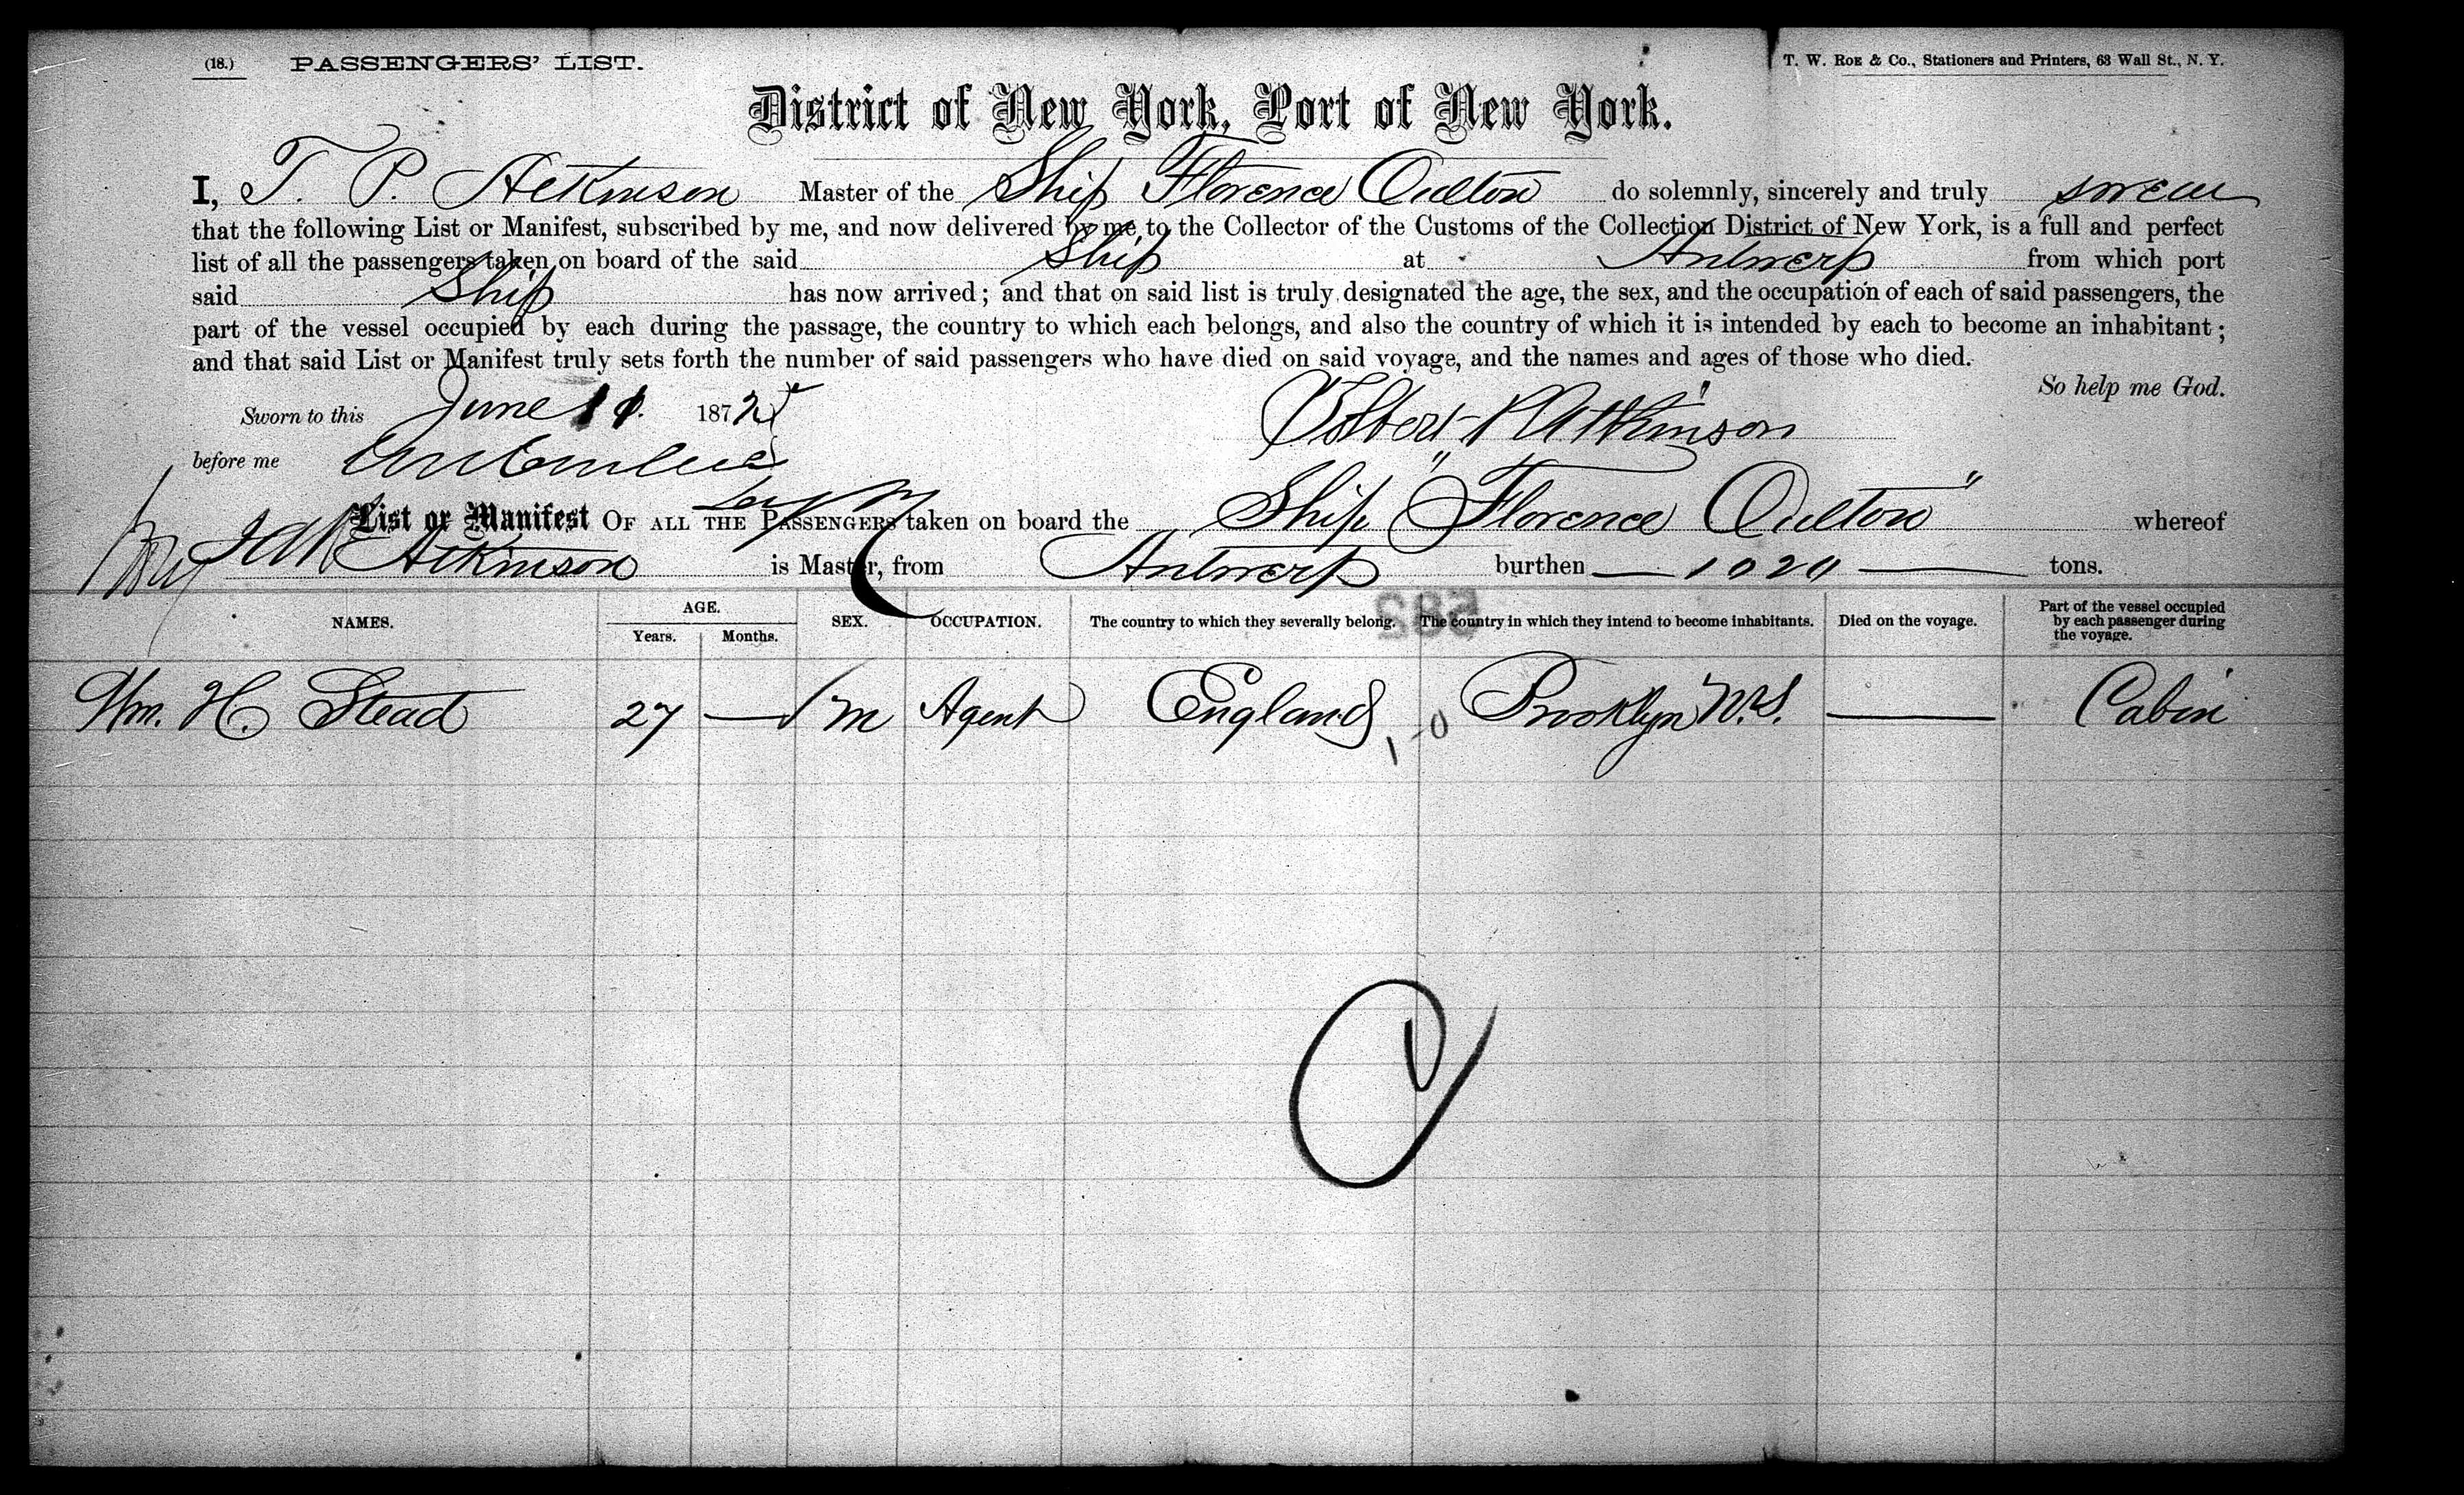 (18.) PASSENGERS' LIST. T. W. ROE & Co., Stationers and Printers, 63 Wall St., N. Y.
District of New York, Port of New York.
I, T. P. Atkinson Master of the Ship Florence Oulton do solemnly, sincerely and truly swear
that the following List or Manifest, subscribed by me, and now delivered by me to the Collector of the Customs of the Collection District of New York, is a full and perfect
list of all the passengers taken on board of the said Ship at Antwerp from which port
said Ship has now arrived; and that on said list is truly designated the age, the sex, and the occupation of each of said passengers, the
part of the vessel occupied by each during the passage, the country to which each belongs, and also the country of which it is intended by each to become an inhabitant;
and that said List or Manifest truly sets forth the number of said passengers who have died on said voyage, and the names and ages of those who died.
So help me God.
Sworn to this June 11 187
Atkinson
before me
List or Manifest OF ALL THE PASSENGERS taken on board the Ship "Florence Oulton" whereof
Atkinson is Master, from Antwerp burthen tons.
NAMES. AGE. Years. Months. SEX. OCCUPATION. The country to which they severally belong. The country in which they intend to become inhabitants. Died on the voyage. Part of the vessel occupied by each passenger during the voyage.
582
Wm. H. Stead 27 — M Agent England Brooklyn N.Y. — Cabin
1-0